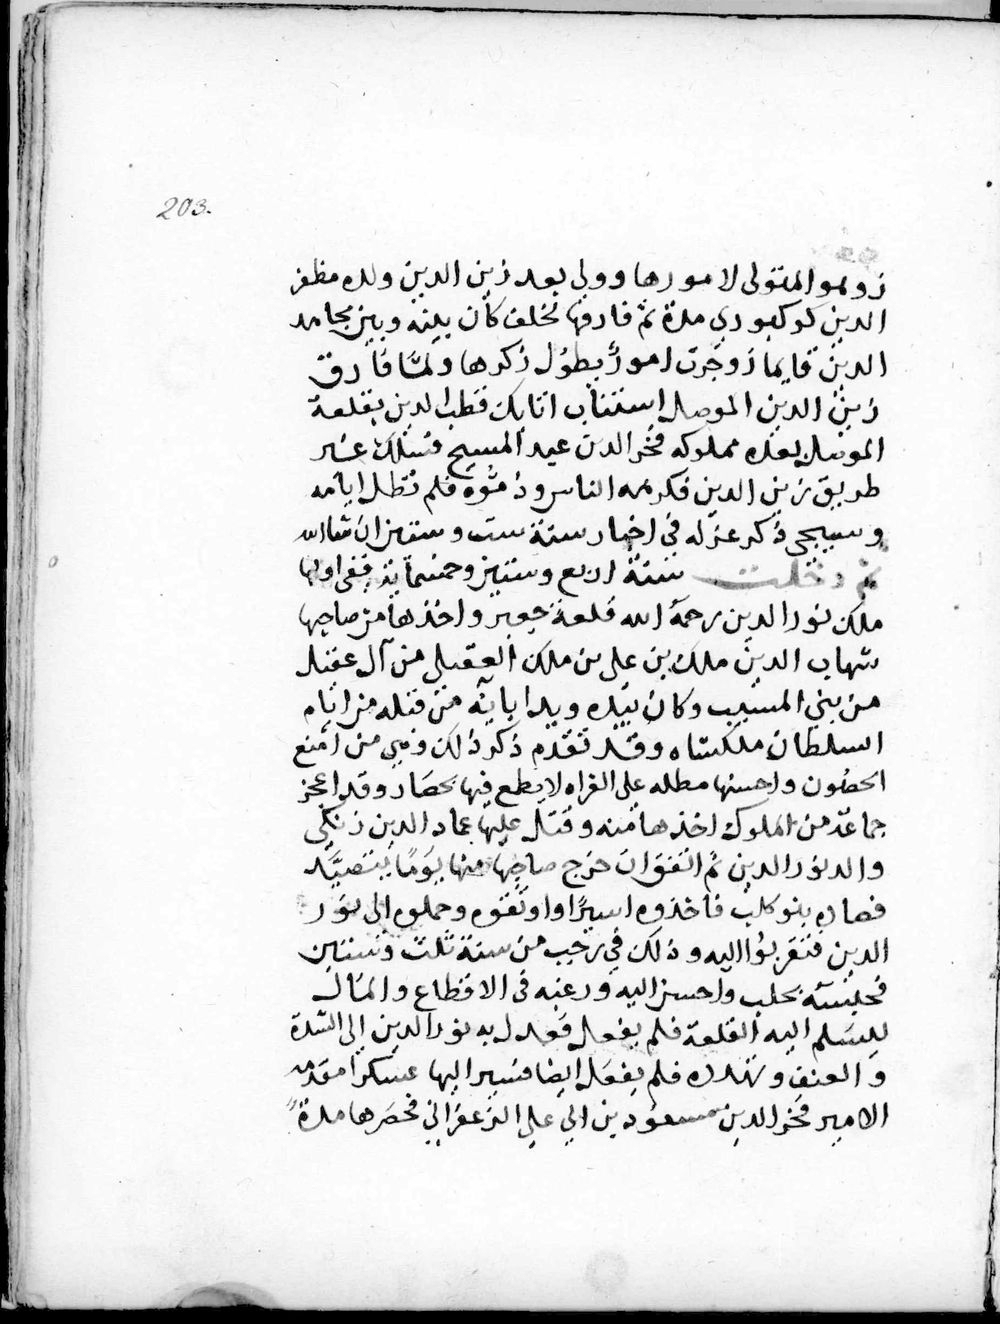 203.
ز وهو المتولى لامورها وولي بعد زين الدين ولده مظفر
الدين كوكبوري مدة ثم فارقها لخلف كان بينه وبين مجاهد
الدين قايماز وجرت امورٌ يطول ذكرها ولمّا فارق
زين الدين الموصل استناب اتابك قطب الدين بقلعة
الموصل بعده مملوكه فخر الدين عبد المسيح فسلك غير
طريق زين الدين فكرهه الناس وذمّوه فلم تطل ايامه
وسيجي ذكر عزله في اخبار سنة ست وستين ان شا الله
ثم دخلت سنة اربع وستين وخمسماية ففي اولها
ملك نور الدين رحمه الله قلعة جعبر واخذها من صاحبها
شهاب الدين ملك بن علي بن ملك العقيلي من آل عقيل
من بني المسيب وكان بيده ويد ابايه من قبله من ايام
السلطان ملكشاه وقد تقدم ذكر ذلك وهي من امنع
الحصون واحسنها مطله على الفراه لا يطمع فيها بحصار وقد اعجز
جماعة من الملوك اخذها منه وقتل عليها عماد الدين زنكي
والد نور الدين ثم اتفق ان خرج صاحبها منها يومًا يتصيّد
فصاده بنو كلب فاخذوه اسيرًا واوثقوه وحملوه الى نور
الدين فتقربوا اليه وذلك في رجب من سنة ثلث وستين
فحبسه بحلب واحسن اليه ورغبه في الاقطاع والمال
ليسلم اليه القلعة فلم يفعل فعدل به نور الدين الى الشدة
والعنف وتهدده فلم يفعل ايضا فسير اليها عسكرا مقدمه
الامير فخر الدين مسعود بن ابي علي الزعفراني فحصرها مدةً